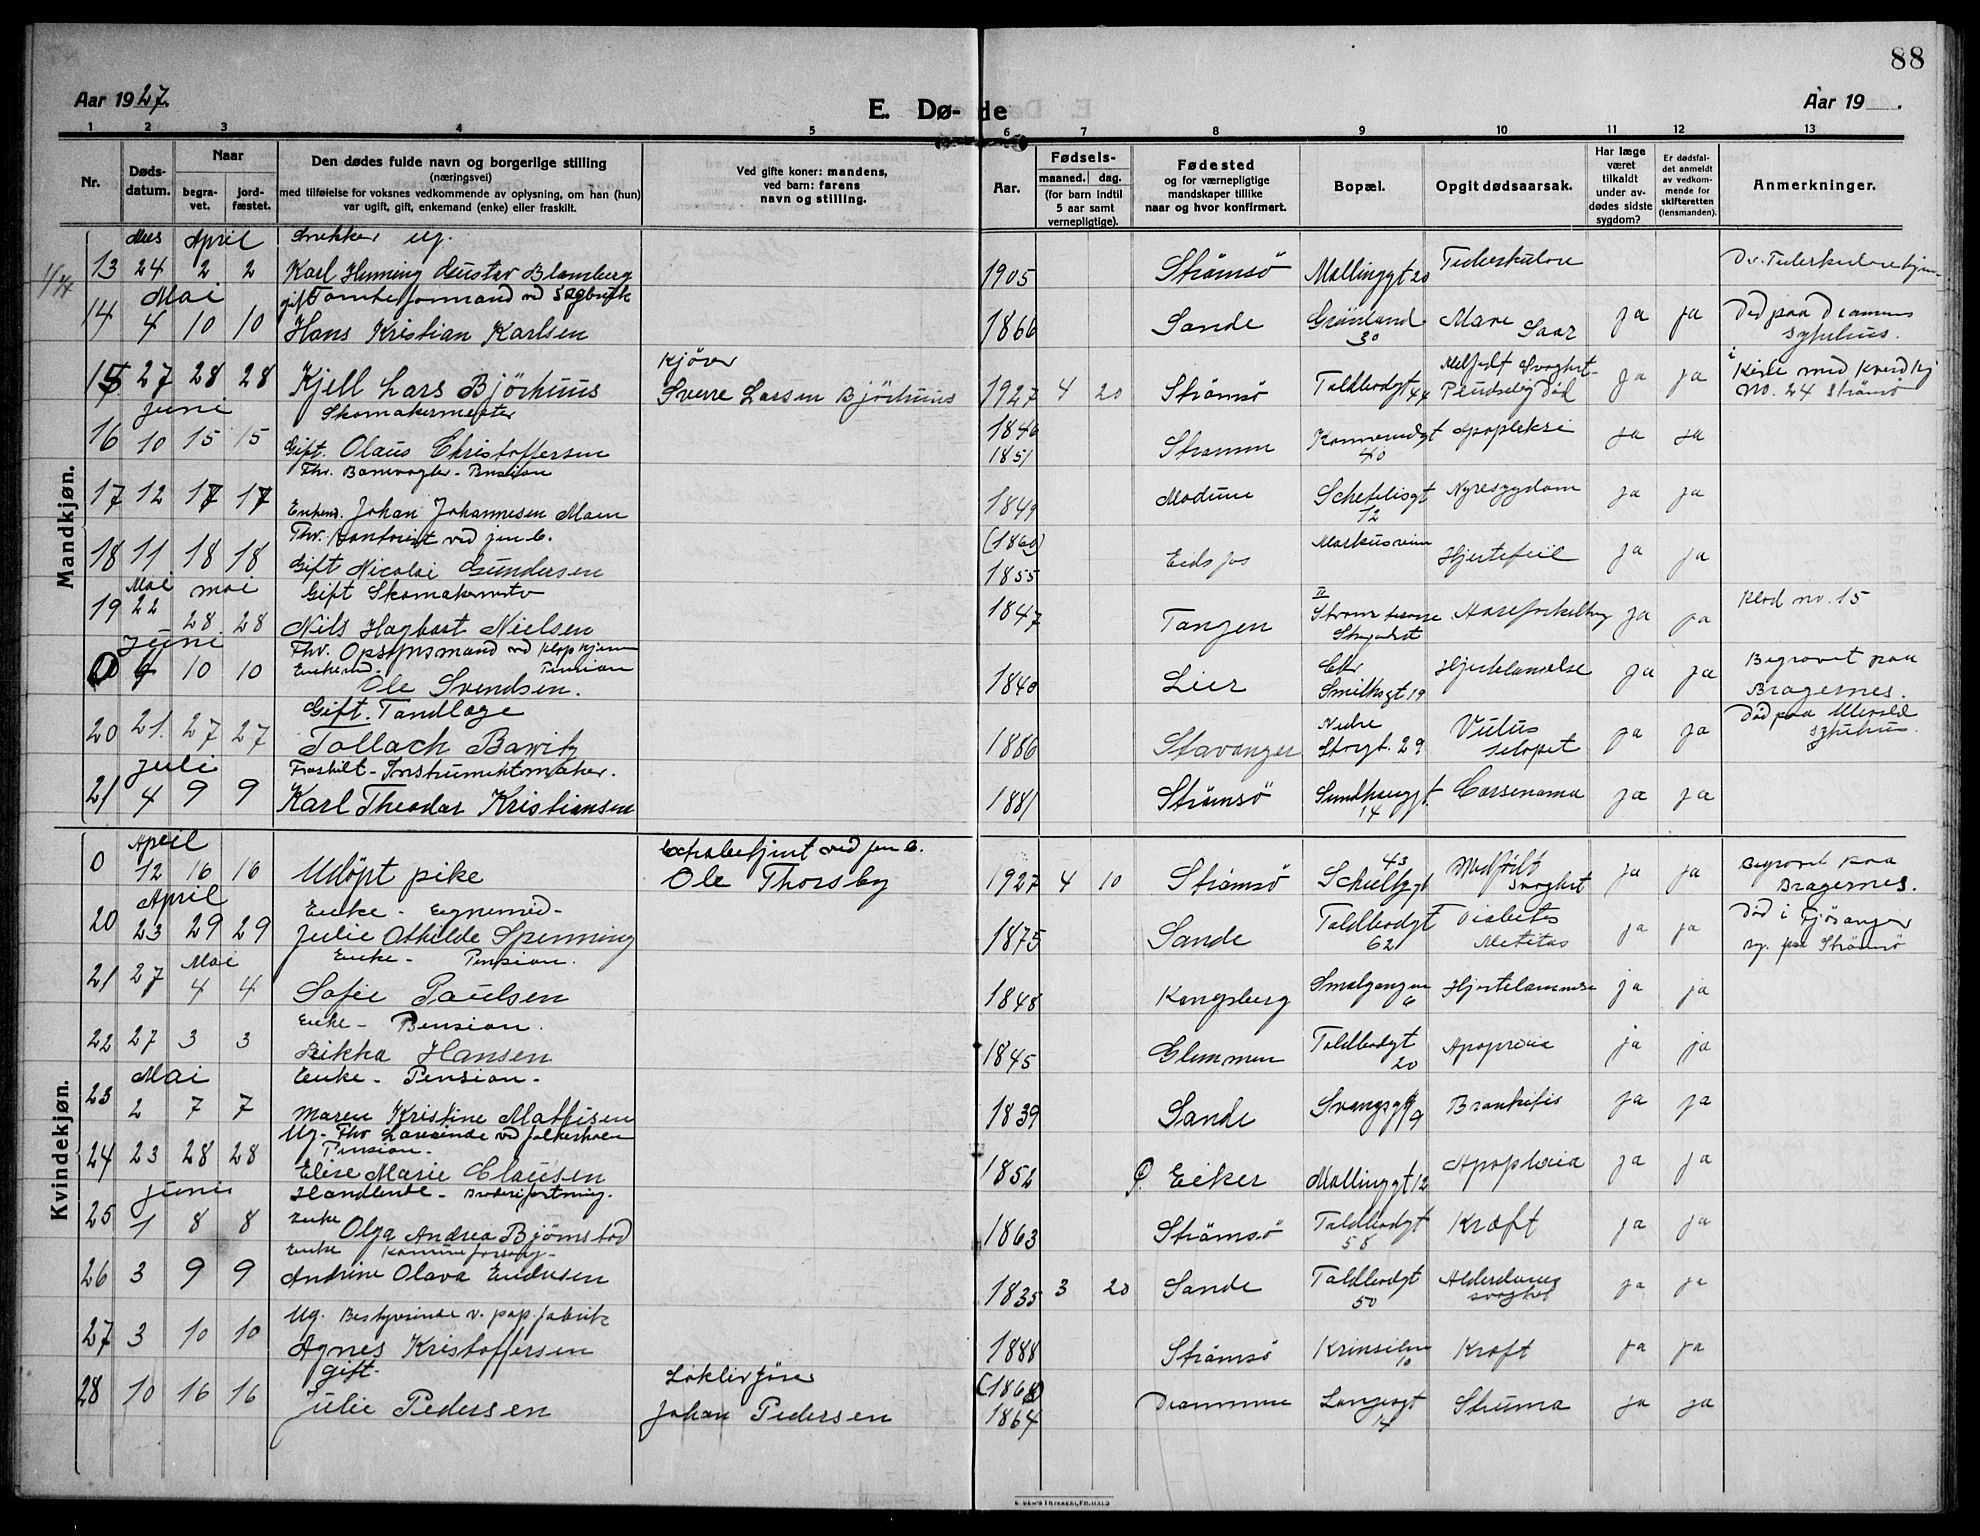 88
Aar 1927.
E. Dø- de
Aar 19 .
1 2 3 4 5 6 7 8 9 10 11 12 13
Nr.
Døds-
datum.
Naar
begra-
vet.
jord-
fæstet.
Den dødes fulde navn og borgerlige stilling
(næringsvei)
med tilføielse for voksnes vedkommende av oplysning, om han (hun)
var ugift, gift, enkemand (enke) eller fraskilt.
Ved gifte koner: mandens,
ved barn: farens
navn og stilling.
Aar.
Fødsels-
maaned. dag.
(for barn indtil
5 aar samt
vernepligtige).
Fødested
og for værnepligtige
mandskaper tillike
naar og hvor konfirmert.
Bopæl.
Opgit dødsaarsak.
Har læge
været
tilkaldt
under av-
dødes sidste
sygdom?
Er dødsfal-
det anmeldt
av vedkom-
mende for
skifteretten
(lensmanden).
Anmerkninger.
Mandkjøn.
April Snekker ug.
13 24 2 2 Karl Henning Gustav Blomberg 1905 Strømsø Mallinggt 20 Tuberkulose
Mai gift Tomteformand ved
14 4 10 10 Hans Kristian Karlsen 1866 Sande Grønland 30 Mave Saar ja ja Død paa Drammens sykehus.
Kjører
15 27 28 28 Kjell Lars Bjørhuus Sverre Larsen Bjørhuus 1927 4 20 Strømsø Toldbodgt 44 Medfødt Svaghet- Pludselig Død ja ja i Kiste med No. 24 Strømsø
Juni Skomakermester
16 10 15 15 Gift. Olaus Christoffersen 1846 1851 40 Apopleksi ja ja
Fhv. Banevogter - Pension
17 12 17 17 Enkem. Johan Johannesen Moen 1849 Modum 12 Nyresygdom ja ja
Fhv. Kontorist ved jen b.
18 11 18 18 Gift Nicolai Gundersen (1860) 1855 Eidsfos Hjertefeil ja ja
Mai mai Gift Skomakermester
19 22 28 28 Nils Hagbart Nielsen 1847 Tangen ja ja no. 15
Juni Fhv. Opsynsmand ved
0 10 10 Enkem. Pension Ole Svendsen. 1840 Lier 19 Hjertelammelse ja ja Begravet paa Bragernes.
Gift. Tandlæge
20 21. 27 27 1886 Stavanger Nedre Storgt. 29 ja ja Død paa Ullevold sykehus.
Juli Fraskilt - Instrumentmaker.
21 4 9 9 Karl Theodor Kristiansen 1881 Strømsø 14 ja ja
Kvindekjøn.
April ved jen b.
0 12 16 16 Udøpt pike Ole Thorsby 1927 4 10 Strømsø 43 Medfødt svaghet ja ja Begravet paa Bragernes.
April Enke - Egnemid -
20 23 29 29 Julie Othilde Spenning 1875 Sande Toldbodgt 62 Diabetes ja ja Død i paa Strømsø
Mai Enke - Pension.
21 27 4 4 Sofie Paulsen 1848 Kongsberg Smalgangen 6 Hjertelammelse ja ja
Enke - Pension.
22 27 3 3 Rikka Hansen 1845 Glemmen Toldbodgt 20 ja ja
Mai Enke - Pension -
23 2 7 7 Maren Kristine Mathisen 1839 Sande 9 Bronkitis ja ja
Ug. Fhv Lærerinde ved folkeskolen Pension -
24 23 28 28 Elise Marie Clausen 1852 Ø. Eiker Mallinggt 12 ja ja
Juni Handlende - Broderiforretning.
25 1 8 8 Enke Olga Andrea Bjørnstad 1863 Strømsø Toldbodgt 58 Kræft ja ja
Enke Komuneforsørg -
26 3 9 9 Andrine Olava Endresen 1835 3 20 Sande Toldbodgt 50 Alderdoms svaghet ja ja
Ug. Bestyrerinde v. pap. fabrik
27 3 10 10 Agnes Kristoffersen 1888 Strømsø 10 Kræft ja ja
Gift. Lokfører
28 10 16 16 Julie Pedersen Johan Pedersen (1868) 1864 Drammen Langesgt Struma ja ja